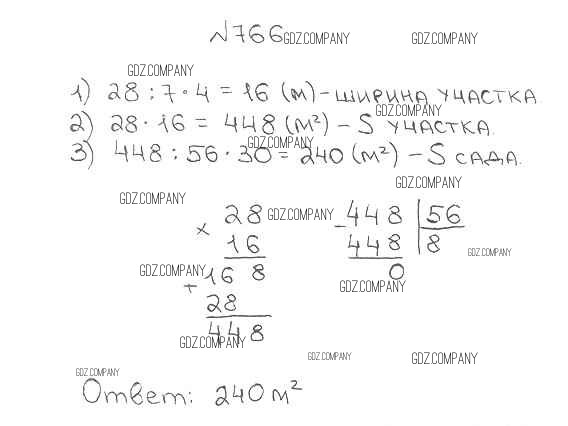 №766 GDZ.COMPANY GDZ.COMPANY
GDZ.COMPANY
1) 28 : 7 · 4 = 16 (м) – ШИРИНА УЧАСТКА.
GDZ.COMPANY
2) 28 · 16 = 448 (м²) – S УЧАСТКА.
GDZ.COMPANY
3) 448 : 56 · 30 = 240 (м²) – S САДА.
GDZ.COMPANY
GDZ.COMPANY
× 28 GDZ.COMPANY - 448 | 56
16 448 | 8
GDZ.COMPANY
GDZ.COMPANY + 168 0
GDZ.COMPANY
28
448
GDZ.COMPANY
GDZ.COMPANY GDZ.COMPANY
GDZ.COMPANY
Ответ: 240 м²